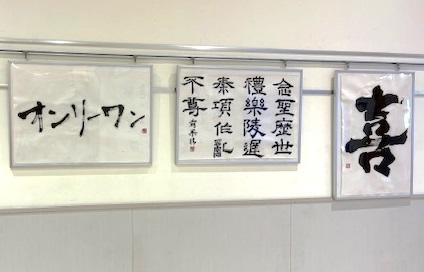 オンリーワン
念聖歴世
禮樂陵遲
秦項作
不尊
喜